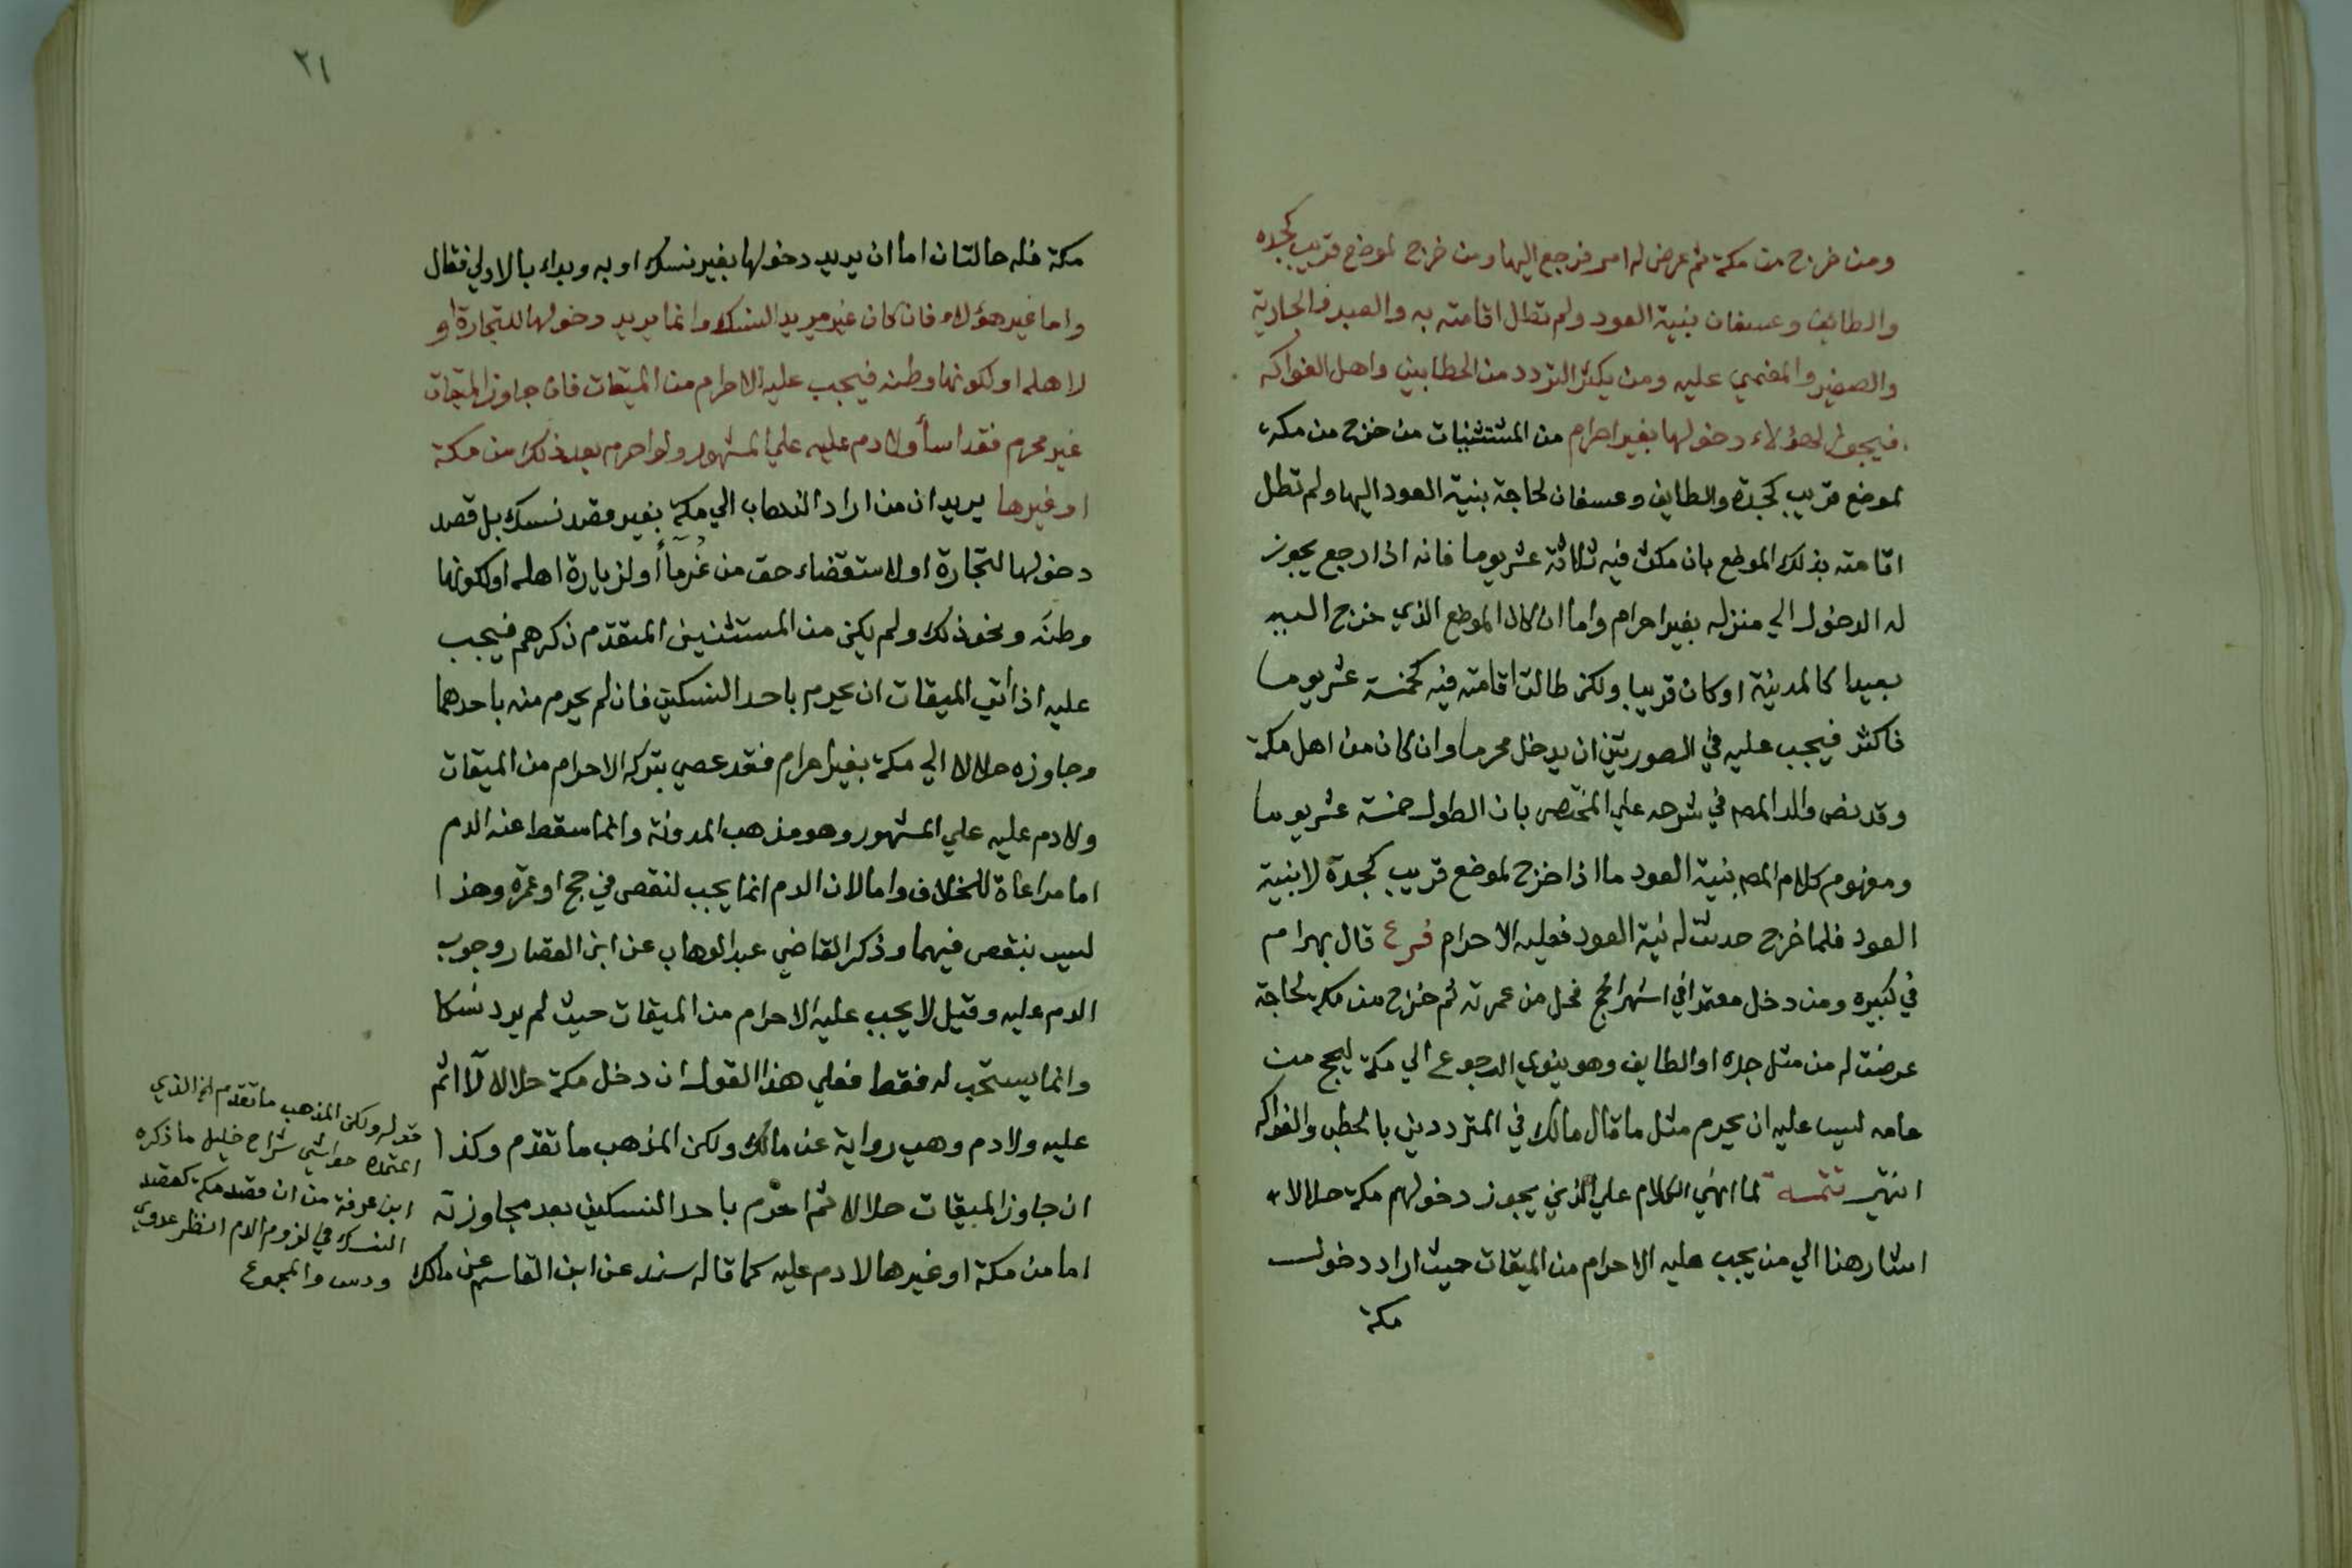 ومن خرج من مكة ثم عرض له امر فرجع اليها ومن خرج لموضع قريب كجده
والطايف وعسفان بنية العود ولم تطل اقامته به والعبد والجارية
والصغير والمغمي عليه ومن يكثر التردد من الحطابين واهل الفواكه
فيجوز لهؤلاء دخولها بغير احرام من المستثنيات من خرج من مكة
لموضع قريب كجدة والطايف وعسفان لحاجة بنية العود اليها ولم تطل
اقامته بذلك الموضع بان مكث فيه ثلاثة عشر يوما فانه اذا رجع يجوز
له الدخول الي منزله بغير احرام واما ان كان الموضع الذي خرج اليه
بعيدا كالمدينة او كان قريبا ولكن طالت اقامته فيه كخمسة عشر يوما
فاكثر فيجب عليه في الصورتين ان يدخل محرما وان كان من اهل مكة
وقد نص والد المص في شرحه علي المختصر بان الطول خمسة عشر يوما
ومفهوم كلام المص بنية العود ما اذا خرج لموضع قريب كجدة لا بنية
العود فلما خرج حدثت له نية العود فعليه الاحرام فرع قال بهرام
في كبيره ومن دخل معتمرا في اشهر الحج فحل من عمرته ثم خرج من مكة لحاجة
عرضت له من مثل جده او الطايف وهو ينوي الرجوع الي مكة ليحج من
عامه ليس عليه ان يحرم مثل ما قال مالك في المترددين بالحطب والفواكه
انتهي تتمه لما انهي الكلام علي الذين يجوز دخولهم مكة حلالا
اشار هنا الي من يجب عليه الاحرام من الميقات حيث اراد دخول
مكة
٢١
مكة فله حالتان اما ان يريد دخولها بغير نسك او به وبداء بالاولي فقال
واما غير هؤلاء فان كان غير مريد النسك وانما يريد دخولها للتجارة او
لاهله او لكونها وطنه فيجب عليه الاحرام من الميقات فان جاوز الميقات
غير محرم فقد اسأ ولا دم عليه علي المشهور ولو احرم بعد ذلك من مكة
او غيرها يريد ان من اراد الذهاب الي مكة بغير قصد نسك بل قصد
دخولها لتجارة او لاستقضاء حق من غرمآ أو لزيارة اهله او لكونها
وطنه ونحو ذلك ولم يكن من المستثنين المتقدم ذكرهم فيجب
عليه اذا أتي الميقات ان يحرم باحد النسكين فان لم يحرم منه باحدهما
وجاوزه حلالا الي مكة بغير احرام فقد عصي بتركه الاحرام من الميقات
ولا دم عليه علي المشهور وهو مذهب المدونة وانما سقط عنه الدم
اما مراعاة للخلاف واما لان الدم انما يجب لنقص في حج او عمرة وهذا
ليس بنقص فيهما وذكر القاضي عبد الوهاب عن ابن القصار وجوب
الدم عليه وقيل لا يجب عليه الاحرام من الميقات حيث لم يرد نسكا
وانما يستحب له فقط فعلي هذا القول ان دخل مكة حلالا لا اثم
عليه ولا دم وهي رواية عن مالك ولكن المذهب ما تقدم وكذا
ان جاوز الميقات حلالا ثم احرم باحد النسكين بعد مجاوزته
اما من مكة او غيرها لا دم عليه كما قاله سند عن ابن القاسم عن مالك
قوله ولكن المذهب ما تقدم الخ الذي
اعتمده حواشي شراح خليل ما ذكره
ابن عرفة من ان قصد مكة كقصد
النسك في لزوم الدم انظر عدوي
ودس والمجموع